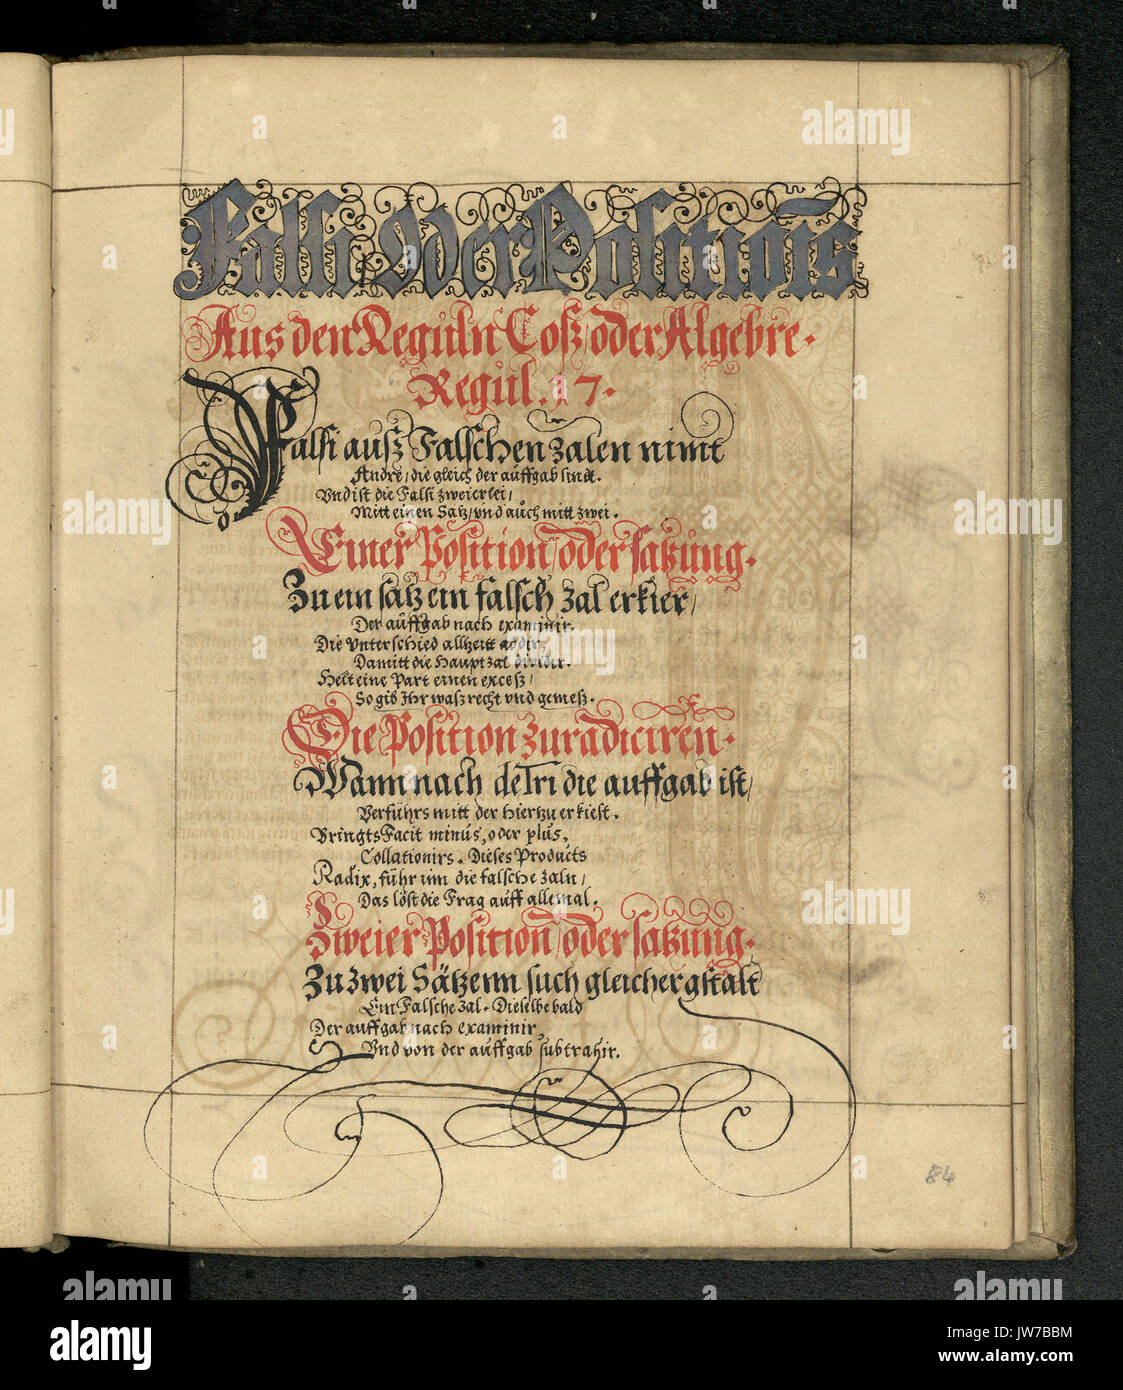 Falsi Oder Positionis
Aus den Reguln Coß oder Algebre.
Regul. 17.
Falsi auß Falschen Zalen nimt
Andre, die gleich der auffgab sindt.
Vnd ist die Falsi zweierlei,
Mitt einen Satz, vnd auch mitt zwei.
Einer Position, oder satzung.
Zu ein satz ein falsch Zal erkier,
Der auffgab nach examinir.
Die Vnterschied allzeitt addir,
Damitt die Hauptzal dividir.
Helt eine Part einen exceß,
So gib Ihr waß recht vnd gemeß.
Die Position zu radiciren.
Wann nach deTri die auffgab ist,
Verführs mitt der hierzu erkiest.
Bringts Facit minus, oder plus,
Collationirs. Dieses Products
Radix, führ inn die falsche Zaln,
Das löst die Frag auff allemal.
Zweier Position, oder satzung.
Zu Zwei Sätzenn such gleicher gstalt
Ein Falsche Zal. Dieselbe bald
Der auffgab nach examinir,
Vnd von der auffgab subtrahir.
84
alamy
Image ID: JW7BBM
www.alamy.com